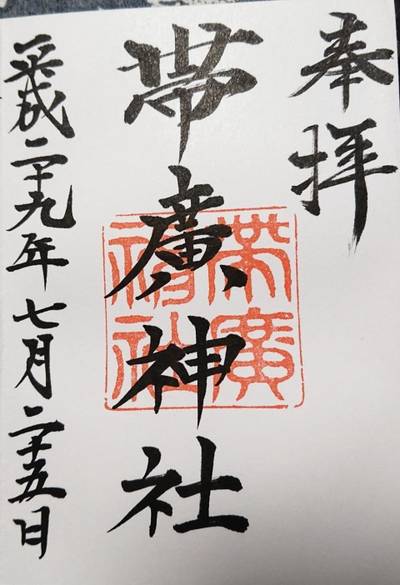 奉拝
帯廣神社
帯廣
神社
平成二十九年七月二十五日